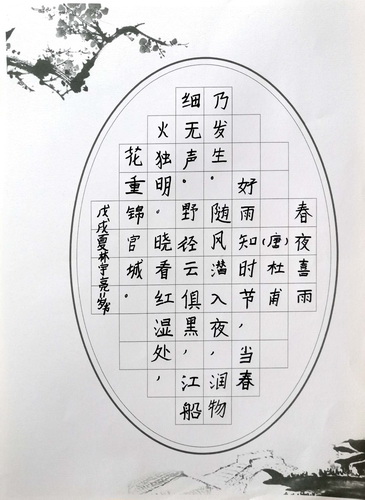 春夜喜雨
(唐)杜甫
好雨知时节,当春
乃发生。随风潜入夜,润物
细无声。野径云俱黑,江船
火独明。晓看红湿处,
花重锦官城。
戊戌夏林宇亮